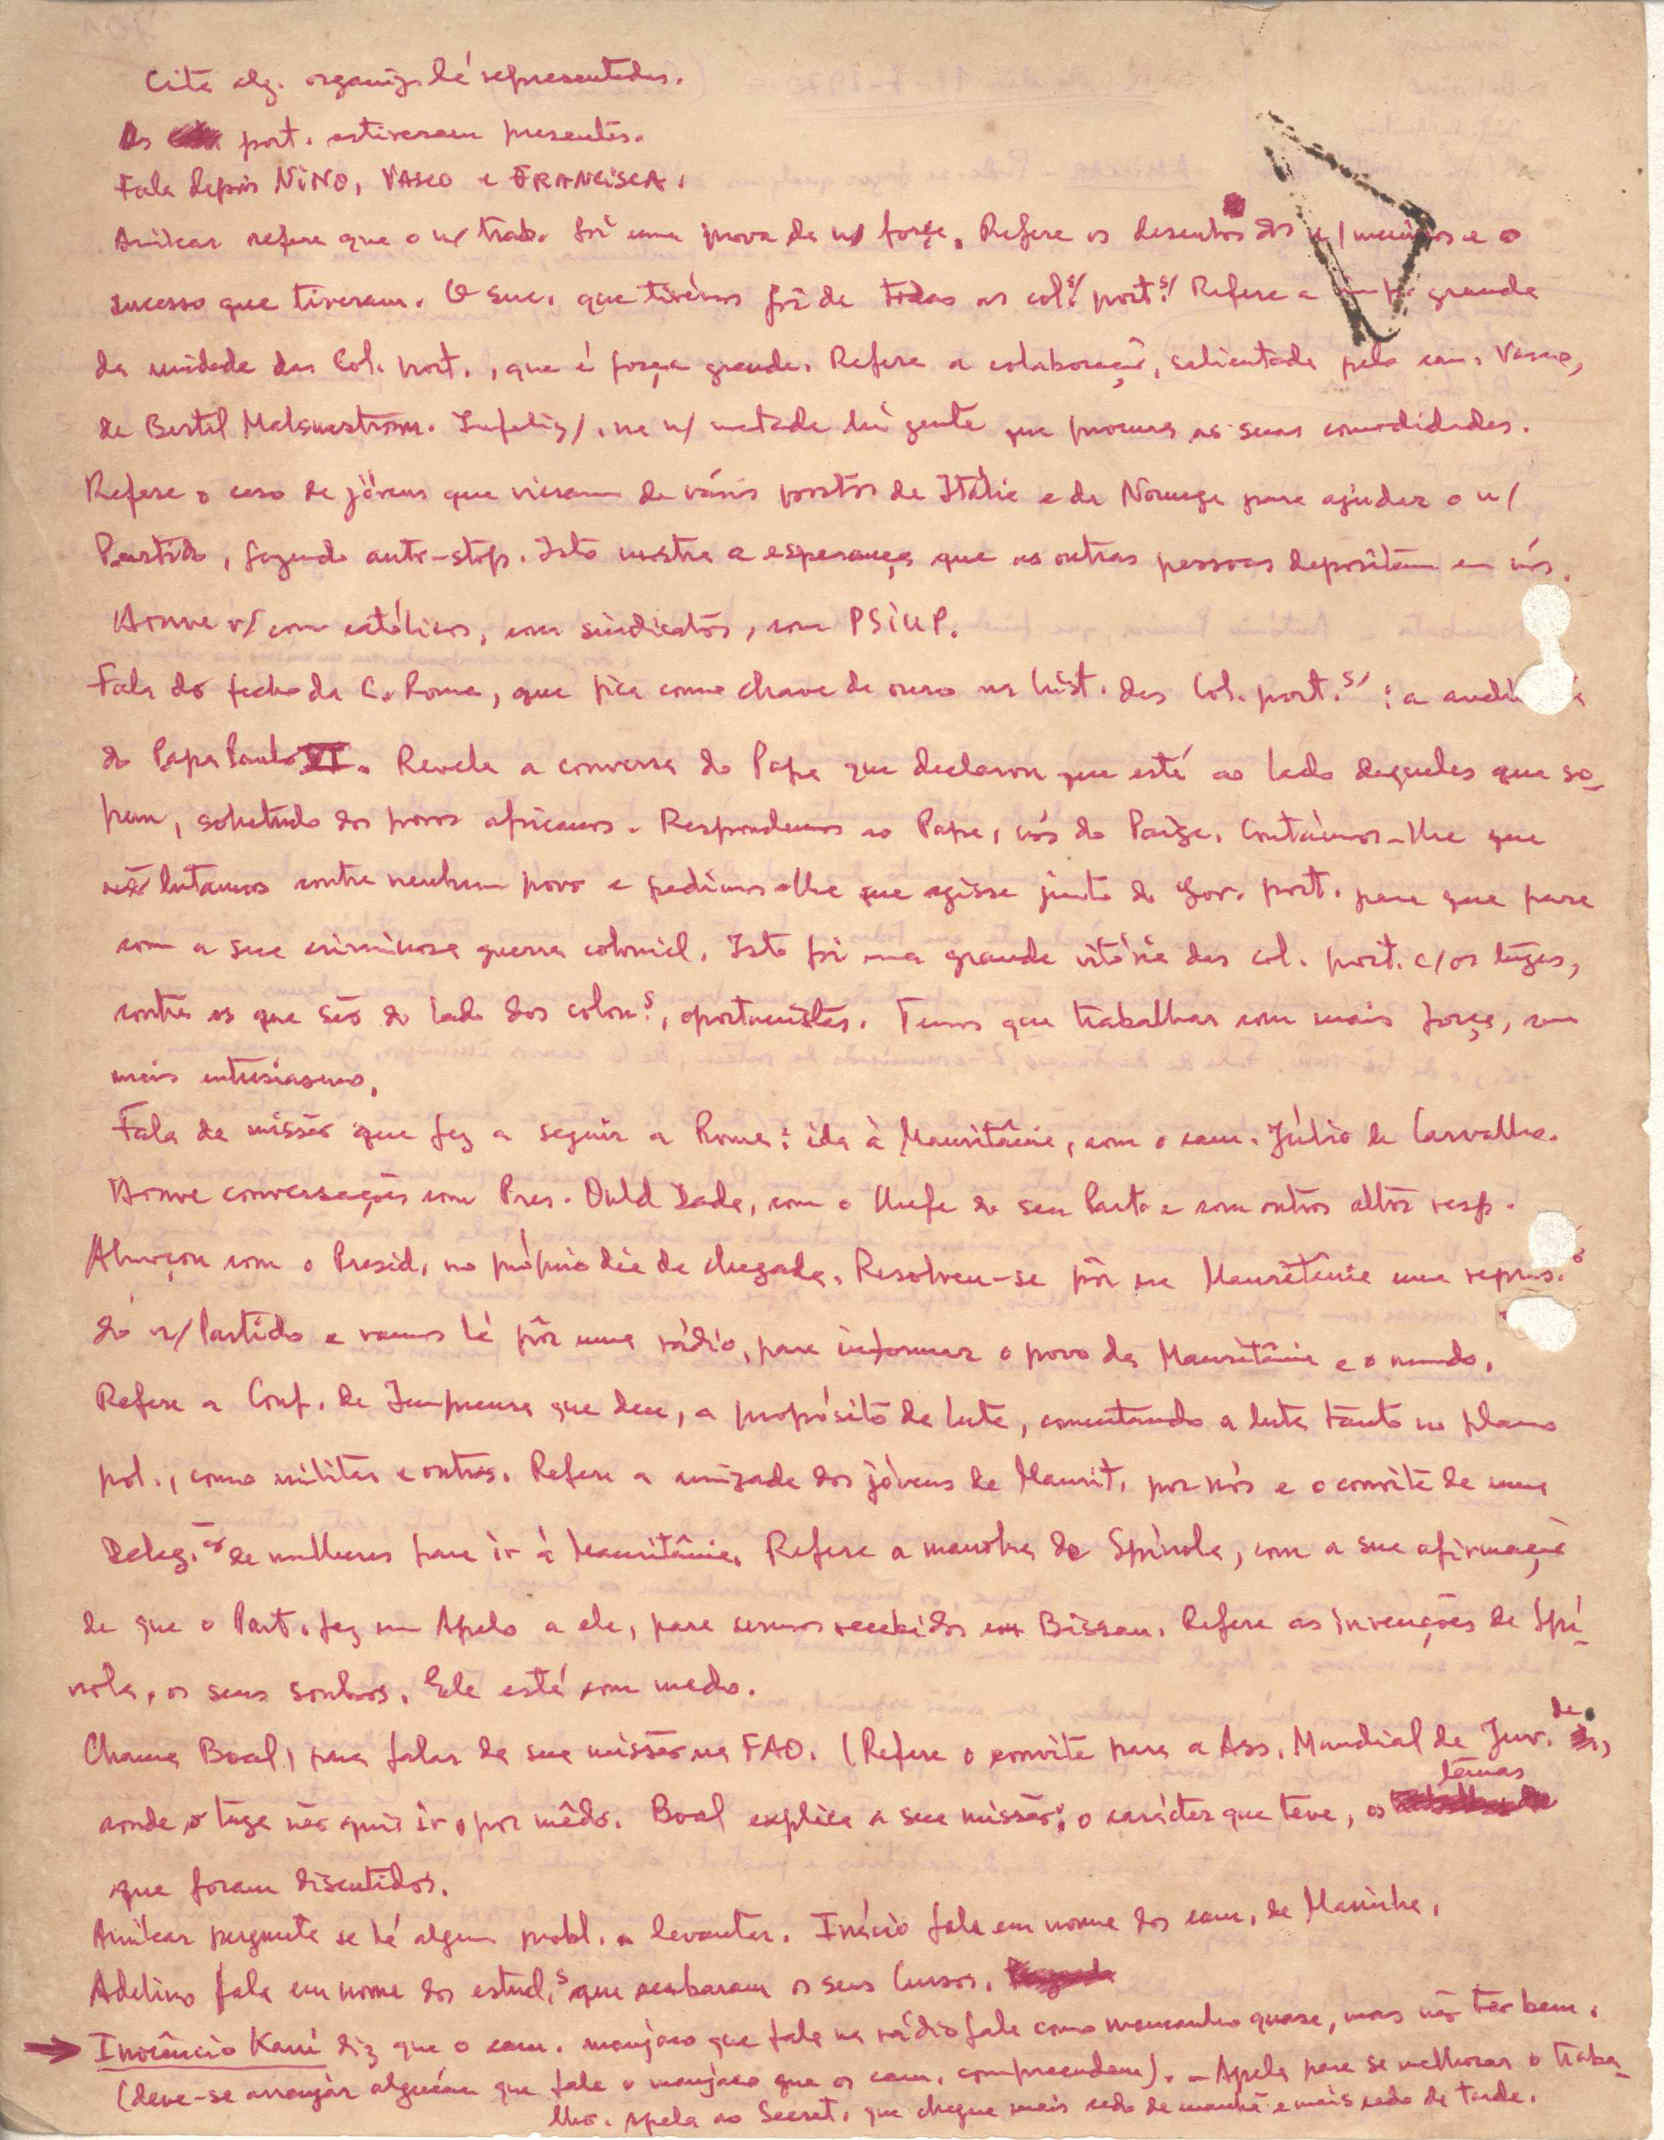 Cita alg. organiz. lá representadas.
Os port. estiveram presentes.
Fala depois NiNO, VASCO e FRANCiSCA.
Amílcar refere que o n/ trab. foi uma prova da n/ força. Refere os desenhos dos n/ meninos e o
sucesso que tiveram. O suc. que tivémos foi de todas as col.s/ port.s/ Refere a grande
da unidade das Col. port., que é força grande. Refere a colaboração, salientada pelo cam. Vasco,
de Bertil Malmström. Infeliz/, na n/ metade há gente que procura as suas comodidades.
Refere o caso de jóvens que vieram de vários pontos de Itália e da Noruega para ajudar o n/
Partido, fazendo auto-stop. Isto mostra a esperança que as outras pessoas depositam em nós.
Houve r/ com católicos, com sindicatos, com PSiUP.
Fala do fecho da C. Roma, que fica como chave de ouro na hist. das Col. port.s/ : a
do Papa Paulo VI. Revela a conversa do Papa que declarou que está ao lado daqueles que so-
frem, sobretudo dos povos africanos. Respondemos ao Papa, nós do Paigc. Contámos-lhe que
não lutamos contra nenhum povo e pedimos-lhe que agisse junto do Gov. port. para que pare
com a sua criminosa guerra colonial. Isto foi uma grande vitória das col. port. c/ os tugas,
contra os que são do lado dos colon.s, oportunistas. Temos que trabalhar com mais força, com
mais entusiasmo.
Fala da missão que fez a seguir a Roma: ida à Mauritânia, com o cam. Júlio de Carvalho.
Houve conversações com Pres. Ould Dada, com o Chefe do seu Parto e com outros altos resp.
Almoçou com o Presid. no próprio dia da chegada. Resolveu-se pôr na Mauritânia uma repres.
do n/ Partido e vamos lá pôr uma rádio, para informar o povo da Mauritânia e o mundo.
Refere a Conf. de Imprensa que deu, a propósito da luta, comentando a luta tanto no plano
pol., como militar e outros. Refere a amizade dos jóvens da Maurit. por nós e o convite de uma
Deleg.ão de mulheres para ir à Mauritânia. Refere a manobra de Spínola, com a sua afirmação
de que o Part. fez um Apelo a ele, para sermos recebidos em Bissau. Refere as invenções de Spí-
nola, os seus sonhos. Ele está com medo.
Chama Boal, para falar da sua missão na FAO. (Refere o convite para a Ass. Mundial da Juv.de,
aonde o tuga não quis ir, por mêdo. Boal explica a sua missão: o carácter que teve, os temas
que foram discutidos.
Amílcar pergunta se há algum probl. a levantar. Inácio fala em nome dos cam. da Marinha.
Adelino fala em nome dos estud.s que acabaram os seus Cursos.
Inocêncio Kani diz que o cam. manjaco que fala na rádio fala como mancanha quase, mas não tão bem.
(deve-se arranjar alguém que fale o manjaco que os cam. compreendam). - Apela para se melhorar o traba-
lho. Apela ao Secret. que chegue mais cedo de manhã e mais cedo de tarde.